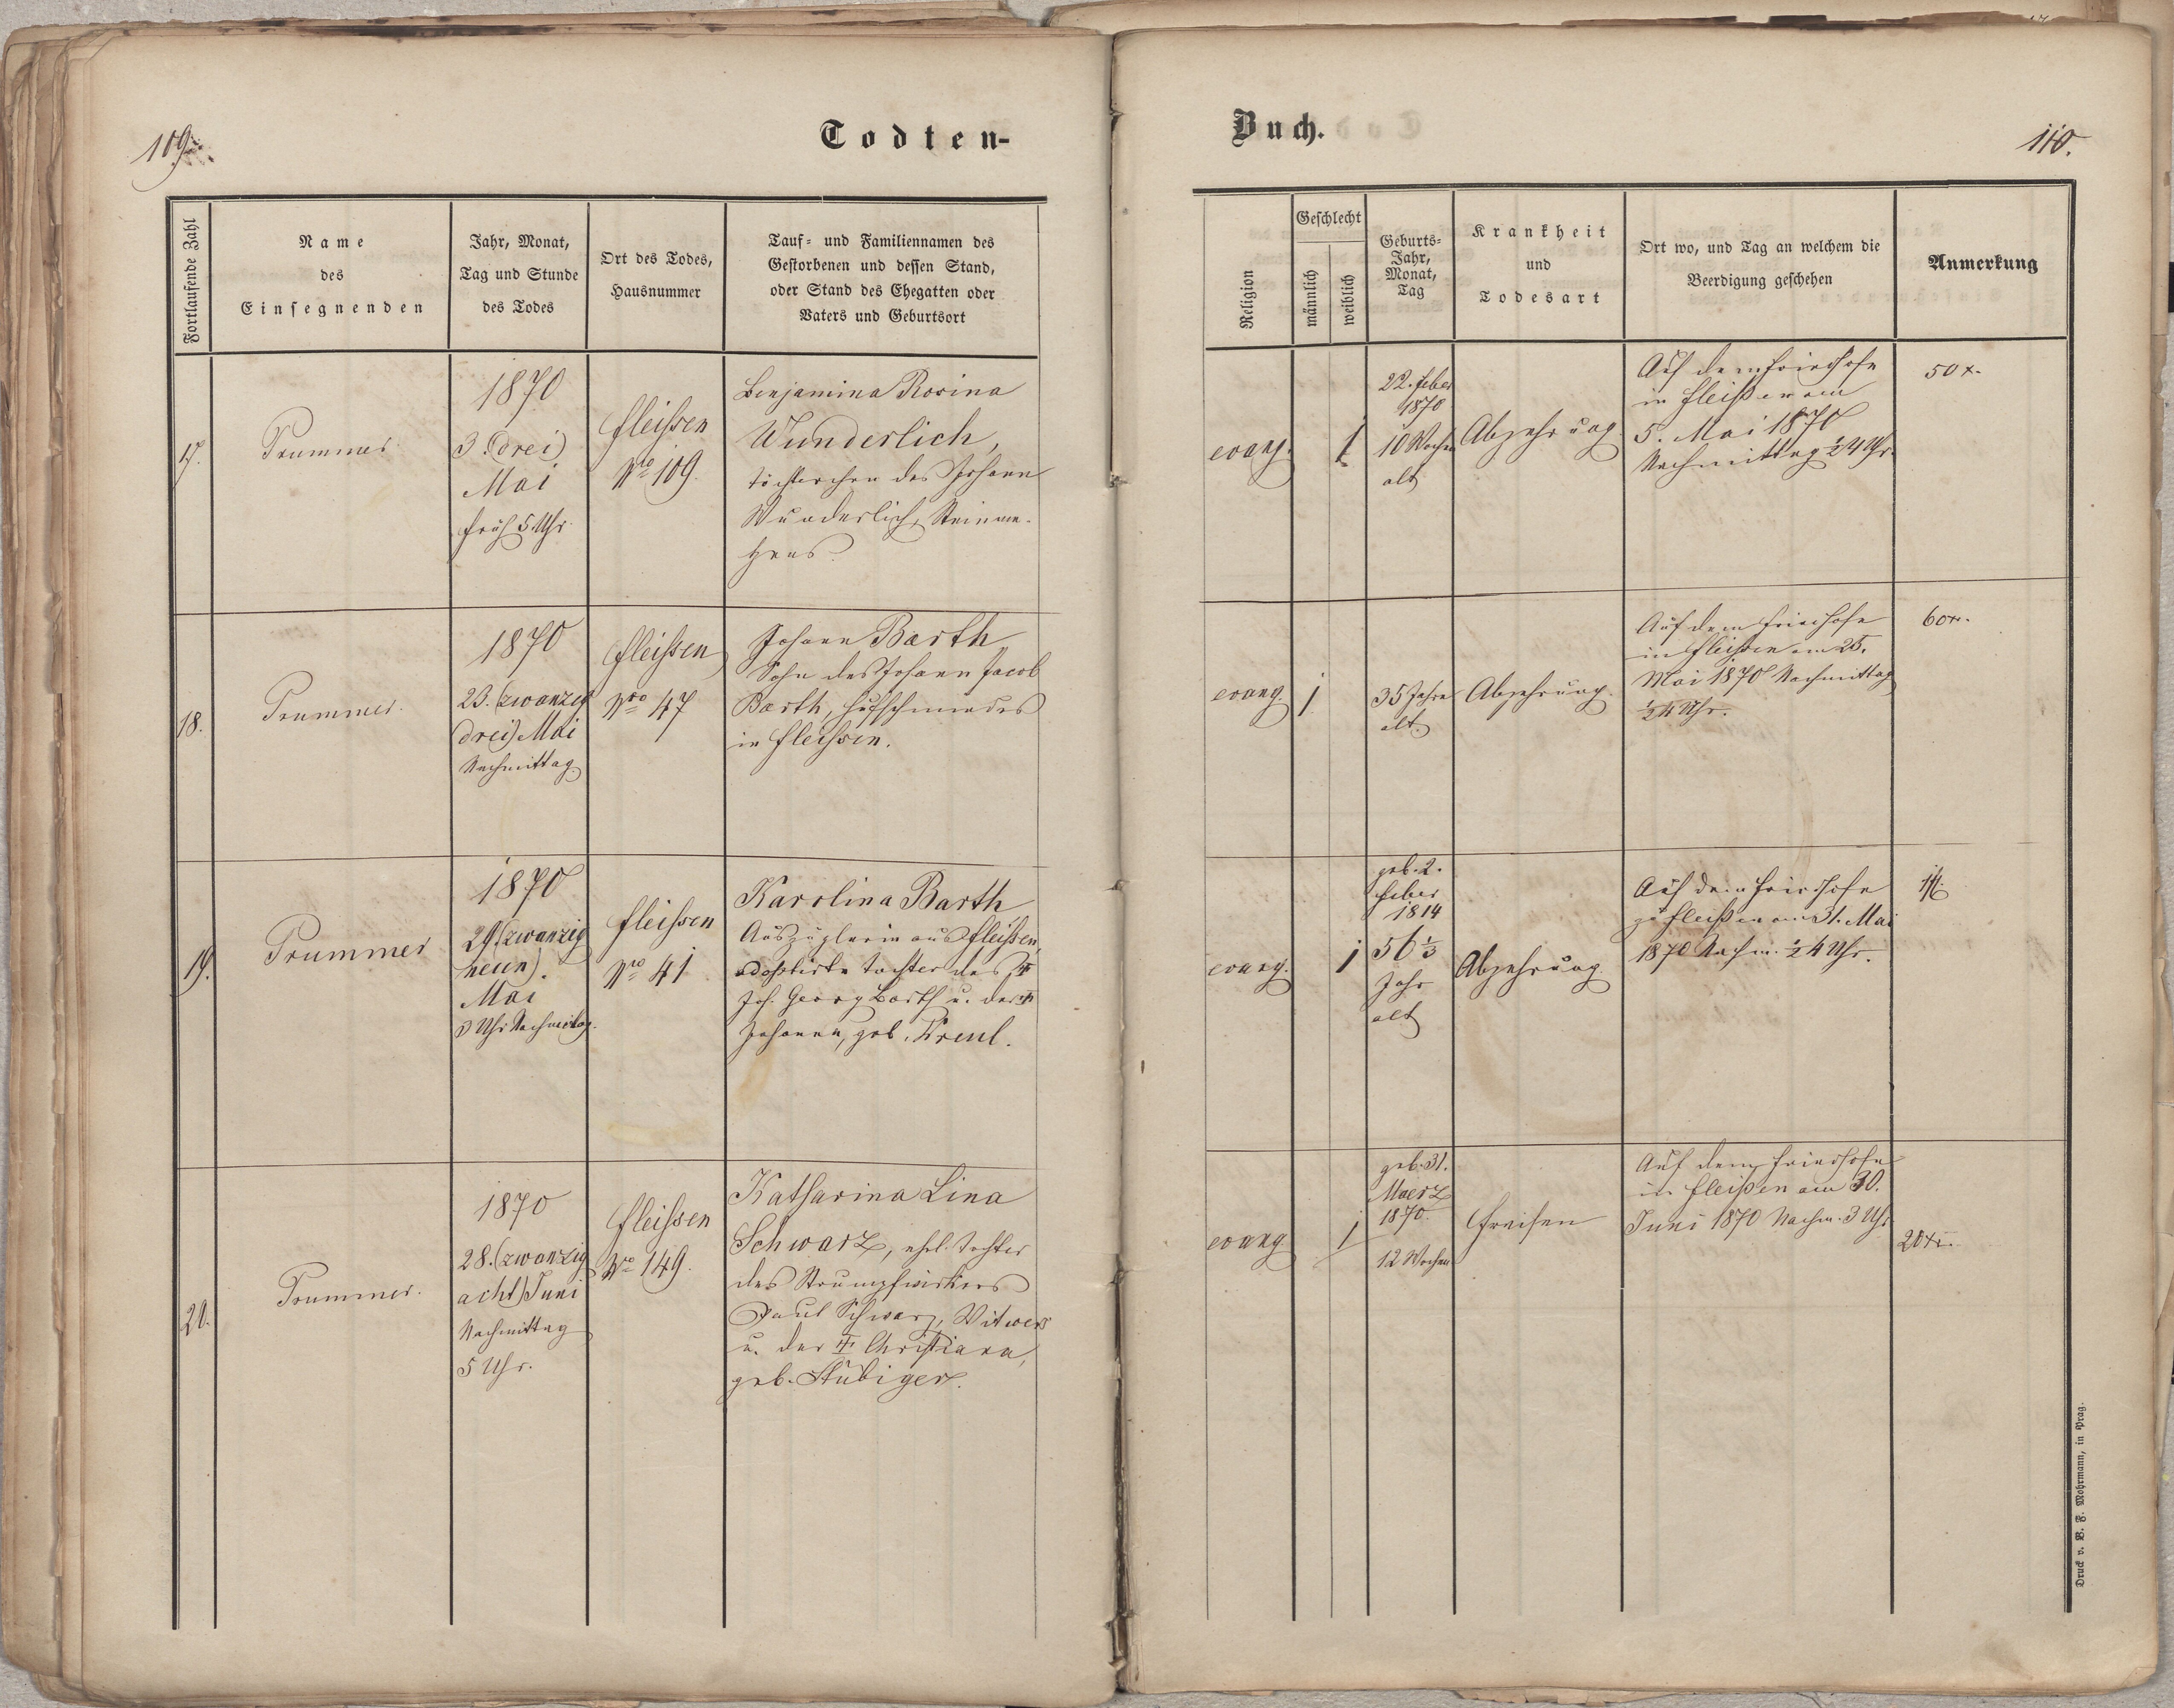 109.
Todten-
Fortlaufende Zahl
Name
des
Einsegnenden
Jahr, Monat,
Tag und Stunde
des Todes
Ort des Todes,
Hausnummer
Tauf- und Familiennamen des
Gestorbenen und dessen Stand,
oder Stand des Ehegatten oder
Vaters und Geburtsort
17.
Trummer
1870
3. (drei)
Mai
früh 5 Uhr.
Fleissen
Nro 109.
Benjamina Rosina
Wunderlich,
Töchterchen des Johann
Wunderlich, Steinme-
tzens
18.
Trummer.
1870
23. (zwanzig
drei) Mai
Nachmittag
Fleissen
Nro 47
Johann Barth
Sohn des Johann Jacob
Barth, Hufschmiedes
in Fleissen.
19.
Trummer
1870
29. (zwanzig
neun).
Mai
3 Uhr Nachmittag.
Fleissen
Nro 41
Karolina Barth
Auszüglerin aus Fleißen,
adoptirte Tochter des †
Joh. Georg Barth u. der †
Johanna, geb. Kreul.
20.
Trummer.
1870
28. (zwanzig
acht) Juni
Nachmittag
5 Uhr.
Fleissen
Nro 149.
Katharina Lina
Schwarz, ehel. Tochter
des Strumpfwirkers
Paul Schwarz, Witwers
u. der † Christiana,
geb. Stübiger.
Buch.
110.
Religion
Geschlecht
männlich
weiblich
Geburts-
Jahr,
Monat,
Tag
Krankheit
und
Todesart
Ort wo, und Tag an welchem die
Beerdigung geschehen
Anmerkung
evang.
1
22. Feber
1870
10 Wochen
alt
Abzehrung
Auf dem Friedhofe
in Fleißen am
5. Mai 1870
Nachmittag ½4 Uhr.
50 x.
evang.
1
35 Jahre
alt.
Abzehrung.
Auf dem Friedhofe
in Fleißen am 25.
Mai 1870 Nachmittag
½4 Uhr.
60 x.
evang.
1
geb. 2.
Feber
1814
56 ⅓
Jahr
alt
Abzehrung.
Auf dem Friedhofe
zu Fleißen am 31. Mai
1870 Nachm. ½4 Uhr.
1 fl.
evang
1
geb. 31.
Maerz
1870.
12 Wochen
Freisen
Auf dem Friedhofe
in Fleißen am 30.
Juni 1870 Nachm. 3 Uhr
20 x.
Druck v. B. F. Mohrmann, in Prag.